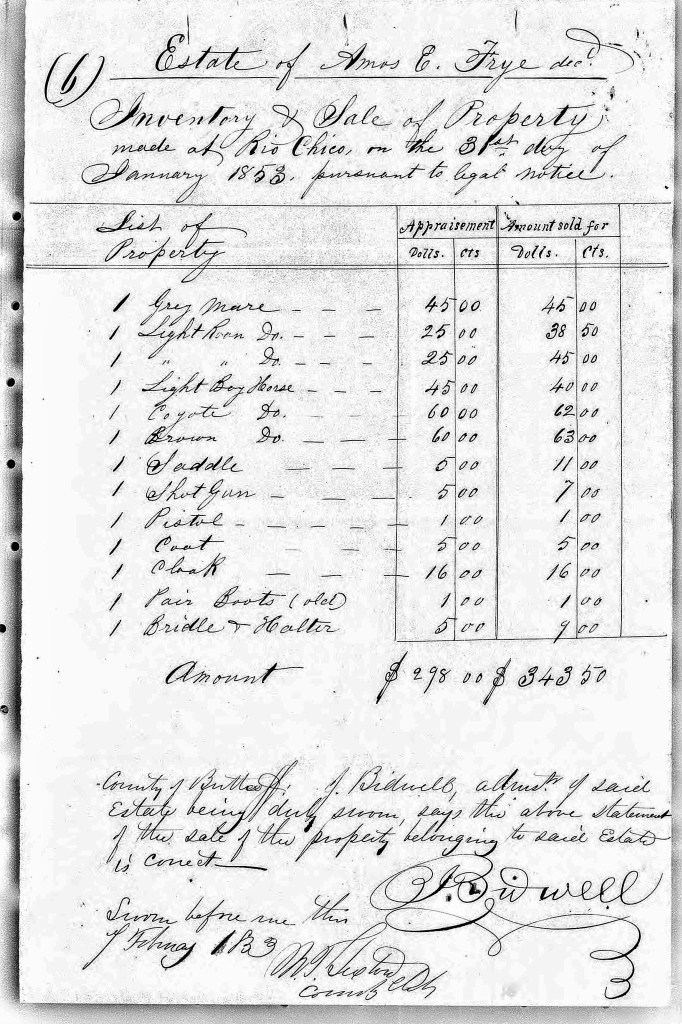 (6)
Estate of Amos E. Frye decd.
Inventory & Sale of Property
made at Rio Chico, on the 31st day of
January 1853. pursuant to legal notice.
List of Property | Appraisement | Amount sold for
Dolls. | cts | Dolls. | Cts.
1 Grey Mare - - - 45 00 45 00
1 Light Roan Do. - - - 25 00 38 50
1 " " Do. - - - 25 00 45 00
1 Light Bay Horse - - - 45 00 40 00
1 Coyote Do. - - - 60 00 62 00
1 Brown Do. - - - - 60 00 63 00
1 Saddle - - - 5 00 11 00
1 Shot Gun - - - - 5 00 7 00
1 Pistol - - - - - 1 00 1 00
1 Coat - - - 5 00 5 00
1 Cloak - - - - 16 00 16 00
1 Pair Boots (old) 1 00 1 00
1 Bridle & Halter 5 00 9 00
Amount $ 298 00 $ 343 50
County of Butte ss. J. Bidwell, admstr of said
Estate being duly sworn, says the above statement
of the sale of the property belonging to said Estate
is correct—
J. Bidwell
Sworn before me this
February 1853
County Clk